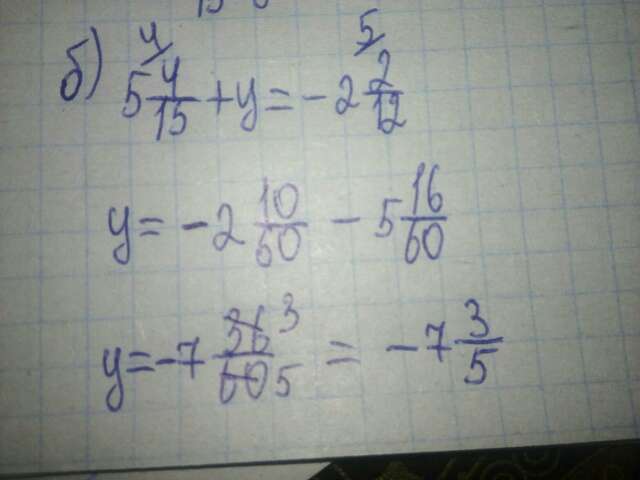 б) 5 4/15 + y = - 2 2/12
y = - 2 10/60 - 5 16/60
y = - 7 36/60 3 5 = - 7 3/5